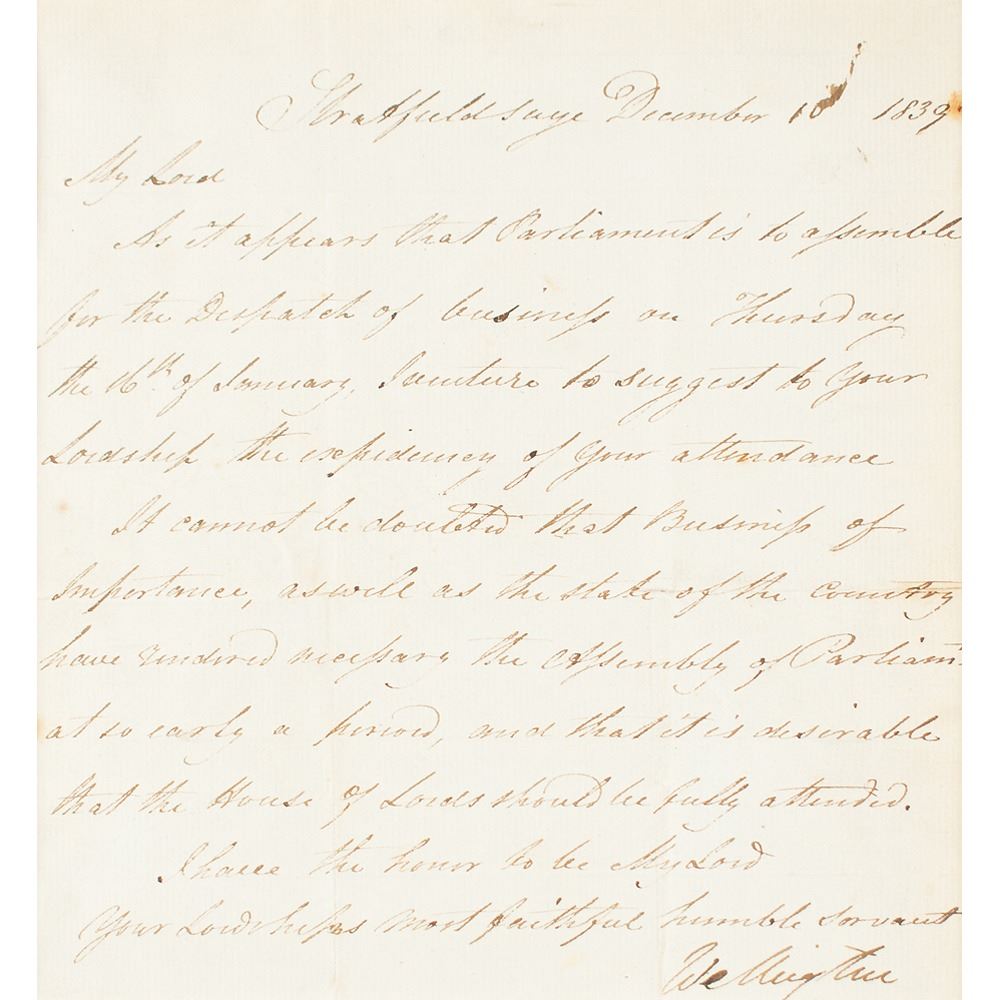 Stratfieldsaye December 10 1839
My Lord
As it appears that Parliament is to assemble
for the Despatch of business on Thursday
the 16th. of January, I venture to suggest to Your
Lordship the expediency of Your attendance
It cannot be doubted that Business of
Importance, as well as the state of the country
have rendered necessary the Assembly of Parliamt.
at so early a period, and that it is desirable
that the House of Lords should be fully attended.
I have the honor to be My Lord
Your Lordships most faithful humble servant
Wellington